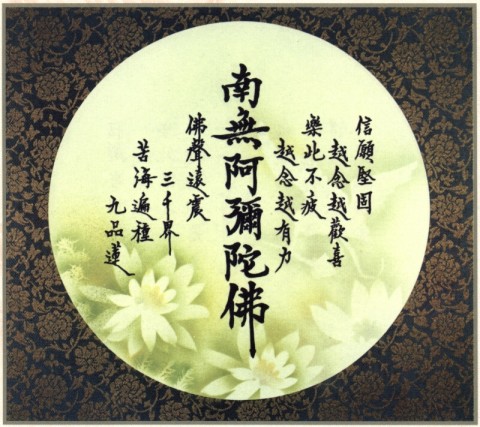 信願堅固
越念越歡喜
樂此不疲
越念越有力
南無阿彌陀佛
佛聲遠震
三千界
苦海遍種
九品蓮